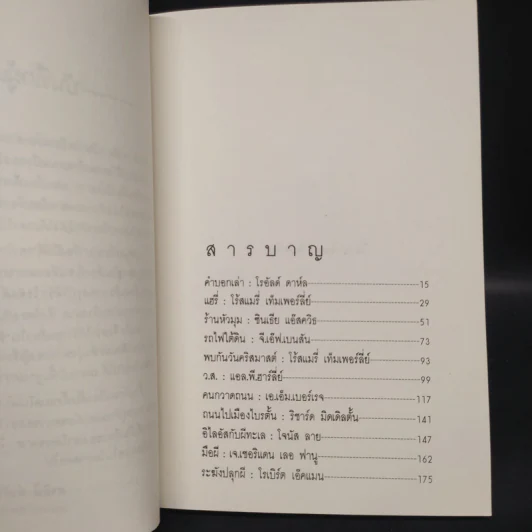 สารบาญ
คำบอกเล่า : โรอัลด์ ดาห์ล 15
แฮรี่ : โร้สแมรี่ เท็มเพอร์ลี่ย์ 29
ร้านหัวมุม : ซินเธีย แอ๊สควิธ 51
รถไฟใต้ดิน : จี.เอ๊ฟ.เบนสัน 73
พบกันวันคริสมาสต์ : โร้สแมรี่ เท็มเพอร์ลี่ย์ 93
ว.ส. : แอล.พี.ฮาร์ลี่ย์ 99
คนกวาดถนน : เอ.เอ็ม.เบอร์เรจ 117
ถนนไปเมืองไบรตั้น : ริชาร์ด มิดเดิลตั้น 141
อิไลอัสกับผีทะเล : โจนัส ลาย 147
มือผี : เจ.เชอริแดน เลอ ฟานู 162
ระฆังปลุกผี : โรเบิร์ต เอ๊คแมน 175